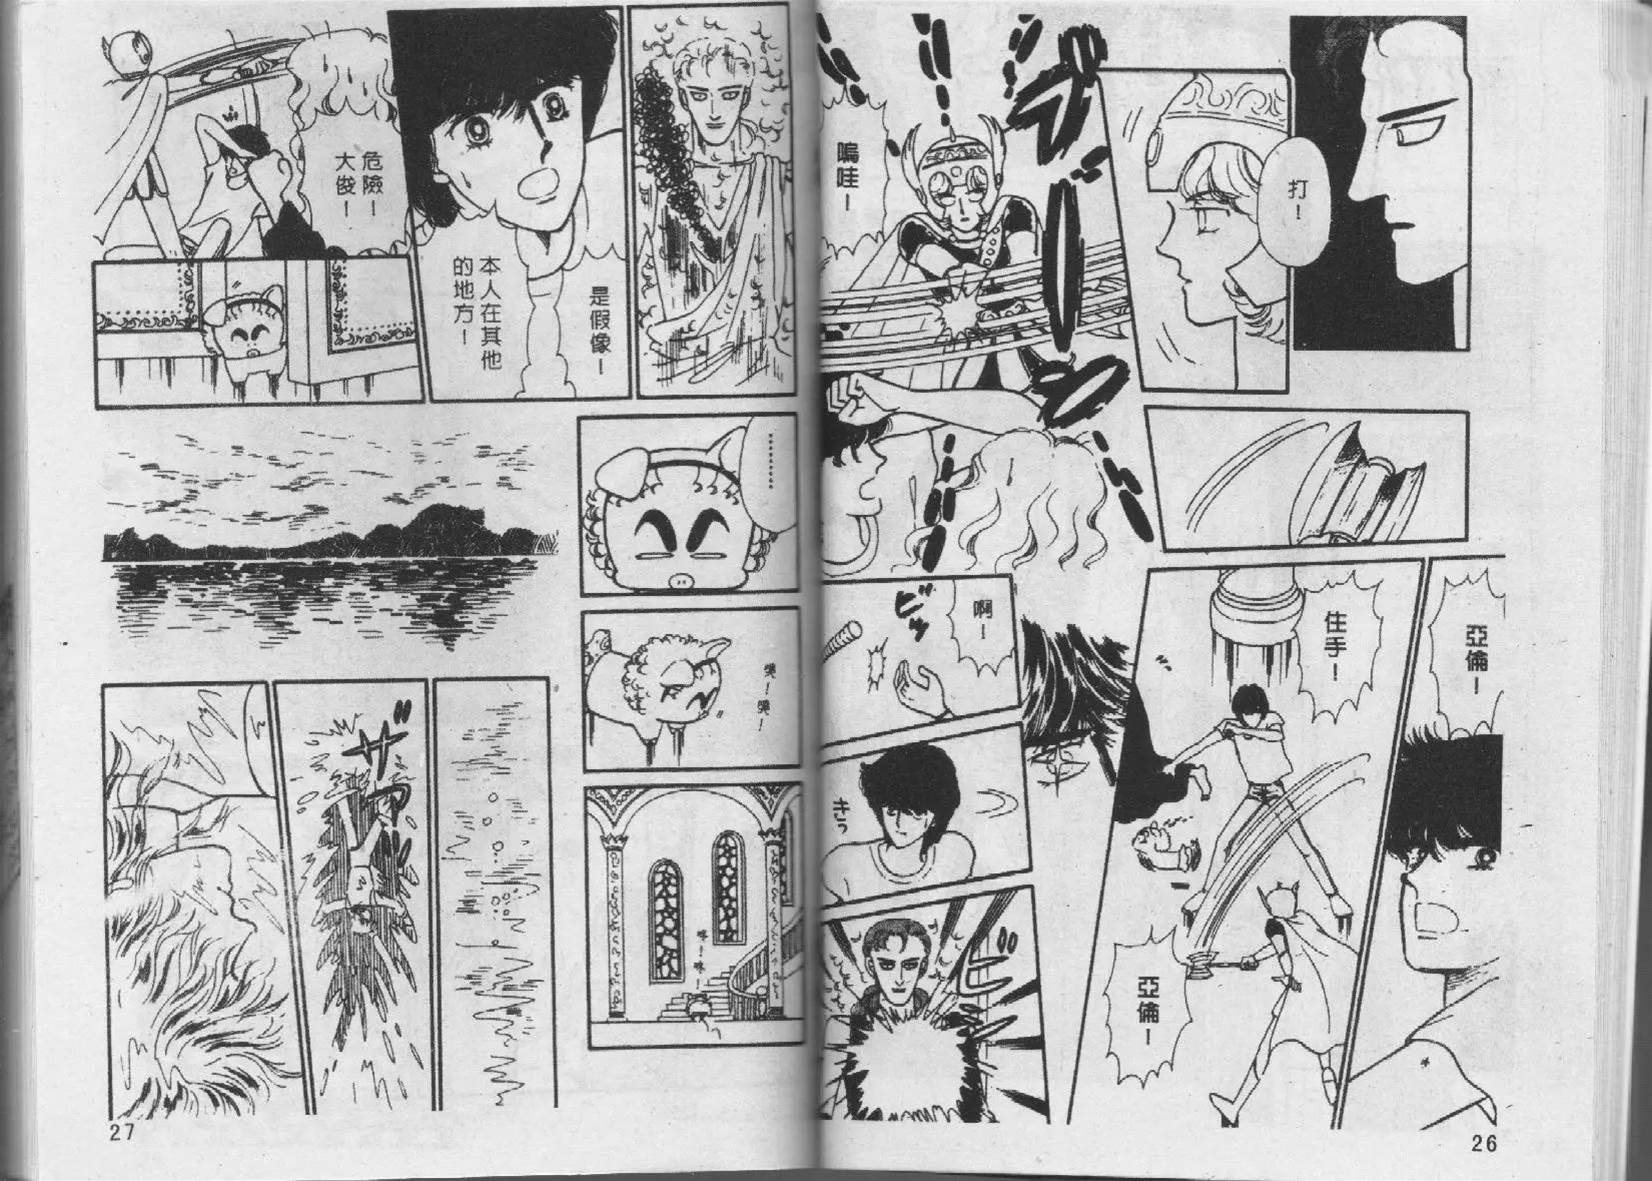 打！
嗚哇！
ブ
亞倫！
住手！
亞倫！
啊！
ビッ
きっ
是假像！
本人在其他
的地方！
危險！
大俊！
…………
咪！咪！
ザ
26
27